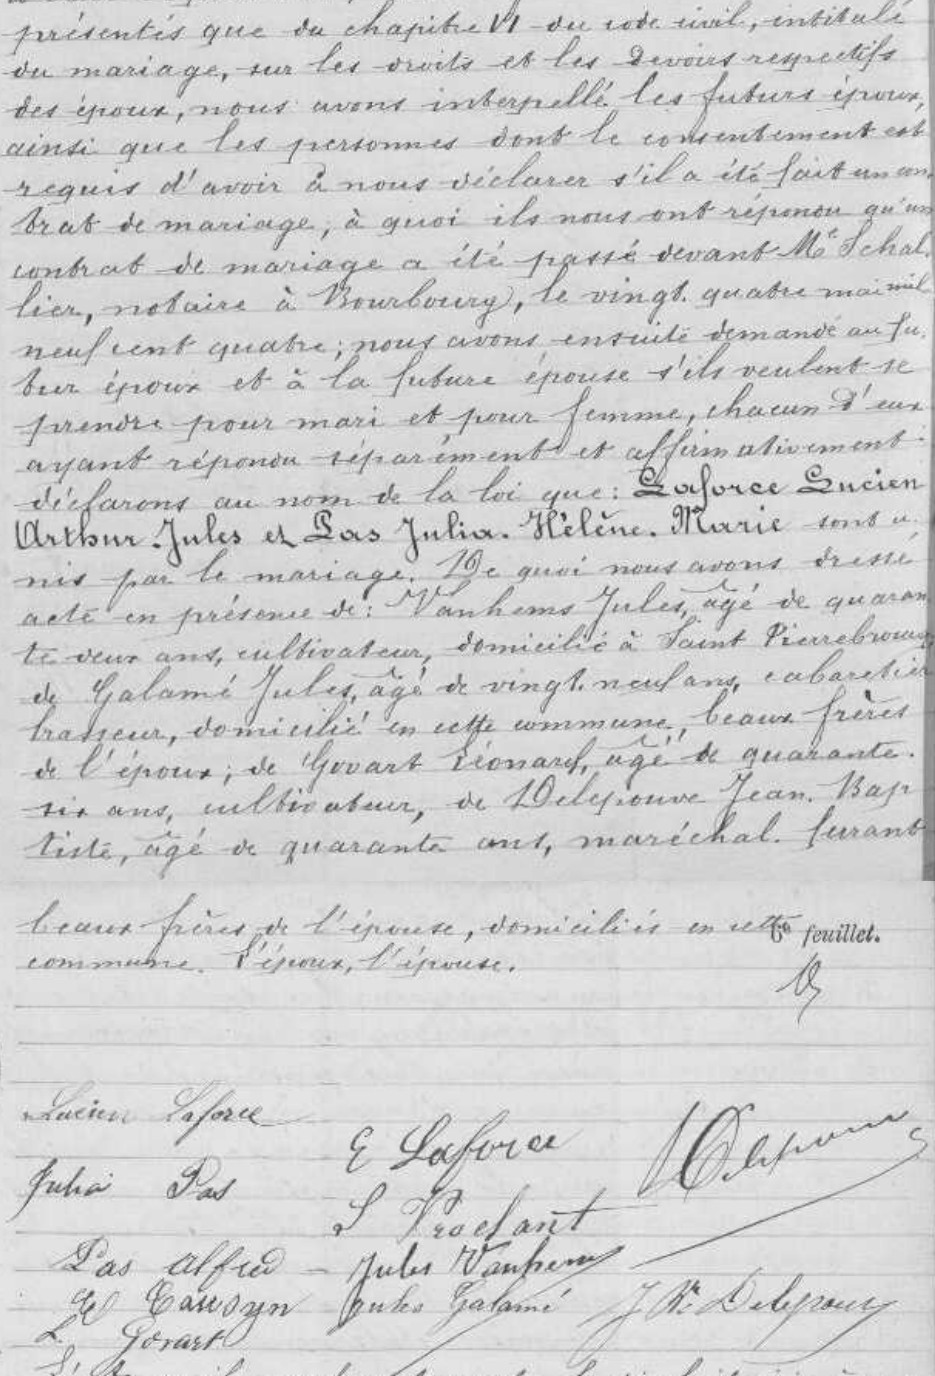 présentés que du chapitre VI du code civil, intitulé
du mariage, sur les droits et les Devoirs respectifs
des époux, nous avons interpellé les futurs époux,
ainsi que les personnes dont le consentement est
requis d'avoir à nous déclarer s'il a été fait un con-
trat de mariage, à quoi ils nous ont répondu qu'un
contrat de mariage a été passé devant Me Schal-
lier, notaire à Bourbourg, le vingt-quatre mai mil
neuf cent quatre; nous avons ensuite demandé au fu-
tur époux et à la future épouse s'ils veulent se
prendre pour mari et pour femme, chacun d'eux
ayant répondu séparément et affirmativement
déclarons au nom de la loi que: Laforce Lucien
Arthur-Jules et Pas Julia-Hélène-Marie sont u-
nis par le mariage. De quoi nous avons dressé
acte en présence de: Vanhems Jules, âgé de quaran
te deux ans, cultivateur, domicilié à Saint Pierrebrouck,
de Galamé Jules, âgé de vingt-neuf ans, cabaretier
brasseur, domicilié en cette commune, beaux frères
de l'époux; de Govart Léonard, âgé de quarante-
six ans, cultivateur, de Delepouve Jean-Bap
tiste, âgé de quarante ans, maréchal-ferrant
beaux frères de l'épouse, domiciliés en cette
6e feuillet.
commune. L'époux, l'épouse.
Lucien Laforce
E Laforce
Delepouve
Julia Pas
Pas Alfred
Jules Vanhems
Jules Galamé
J Bte Delepouve
L. Govart